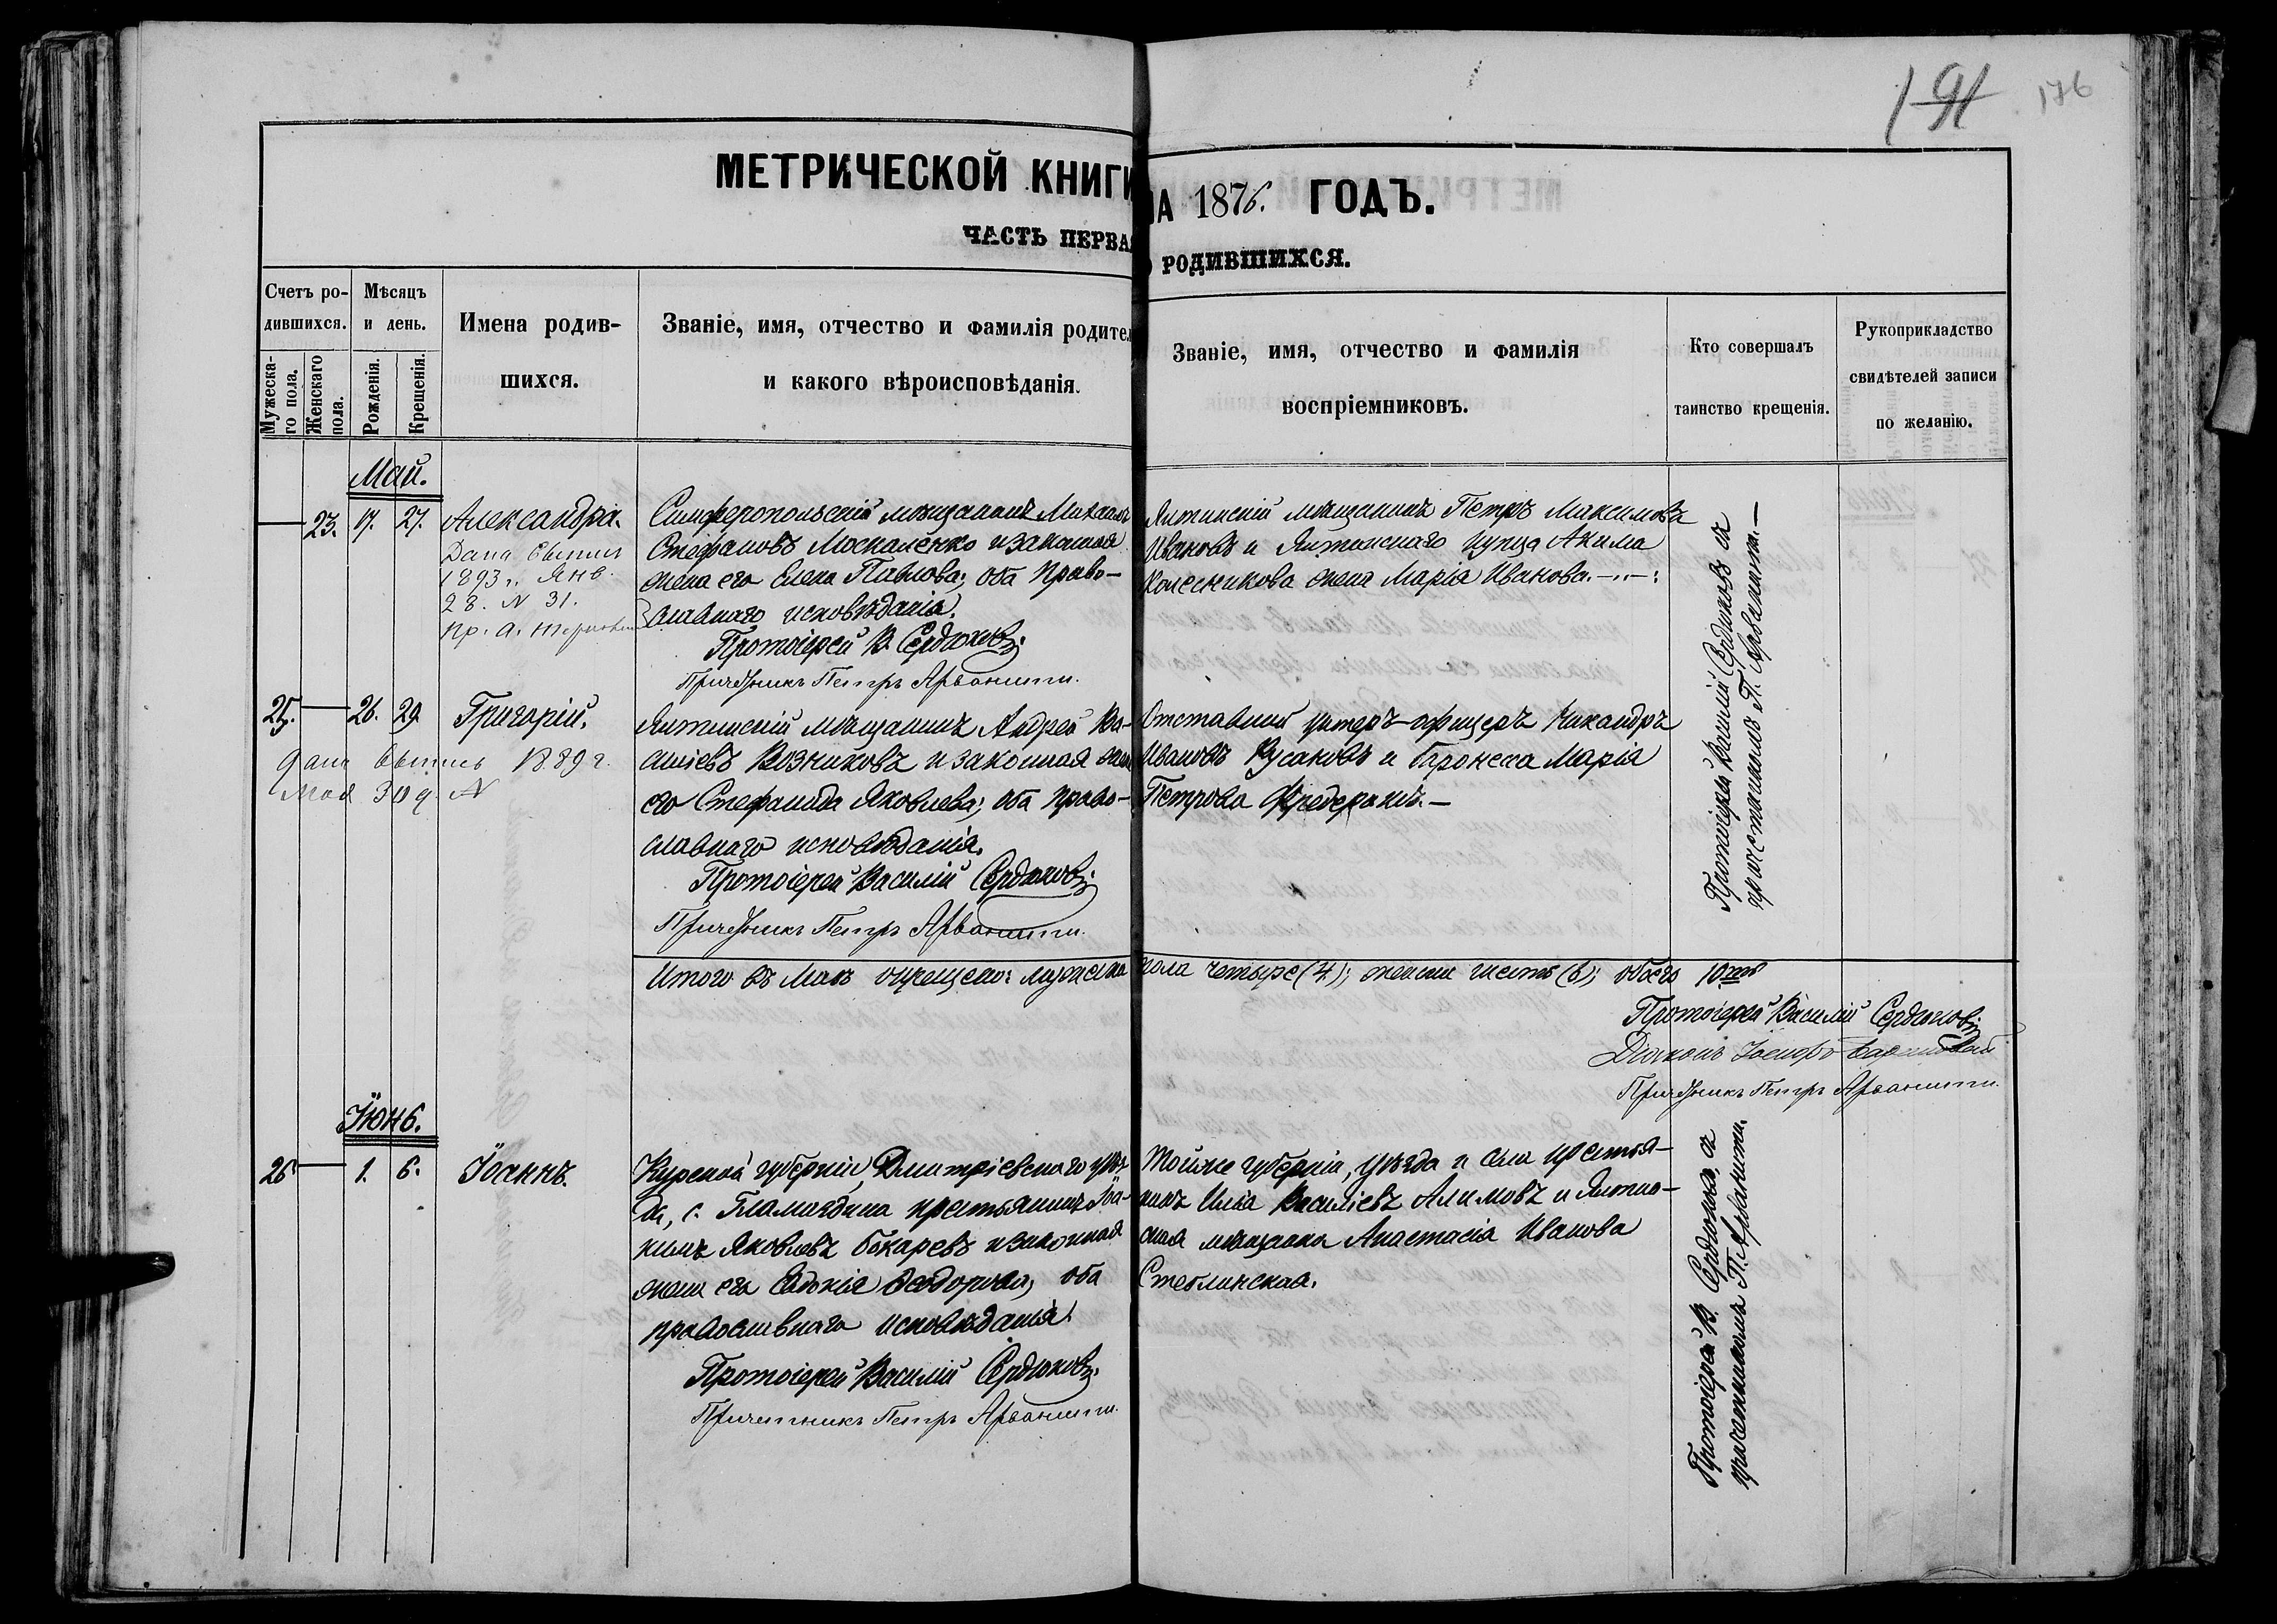 191 176
МЕТРИЧЕСКОЙ КНИГИ НА 1876. ГОДЪ.
ЧАСТЬ ПЕРВАЯ О РОДИВШИХСЯ.
Счетъ родившихся.
Мужескаго пола.
Женскаго пола.
Мѣсяцъ и день.
Рожденія.
Крещенія.
Имена родив-
шихся.
Званіе, имя, отчество и фамилія родител
и какого вѣроисповѣданія.
Званіе, имя, отчество и фамилія
воспріемниковъ.
Кто совершалъ
таинство крещенія.
Рукоприкладство
свидѣтелей записи
по желанію.
Май.
23. 17. 27. Александра.
Дана выпись
1893 г. Янв.
28. N 31.
Симферопольскій мѣщанинъ Михаилъ
Стефановъ Москаленко и законная
жена его Елена Павлова; оба право-
славнаго исповѣданія.
Протоіерей В. Сердюковъ.
Причетникъ Петръ Арванити.
Ялтинскій мѣщанинъ Петръ Максимовъ
Ивановъ и Ялтинскаго купца Акима
Колесникова жена Марія Иванова.
Протоіерей Василій Сердюковъ съ
причетникомъ П. Арванити.
25. 26. 29. Григорій.
Дана выпись 1889 г.
Мая 30 д. N
Ялтинскій мѣщанинъ Андрей Ва-
силіевъ Возниковъ и законная жена
его Стефанида Яковлева; оба право-
славнаго исповѣданія.
Протоіерей Василій Сердюковъ.
Причетникъ Петръ Арванити.
Отставной унтеръ-офицеръ Никандръ
Ивановъ Русановъ и баронесса Марія
Петрова Фредериксъ.
Итого въ Маѣ окрещено: мужеска пола четыре (4); женска шесть (6); обоего 10ть
Протоіерей Василій Сердюковъ
Діаконъ Іосифъ
Причетникъ Петръ Арванити.
Іюнь.
26 1. 6. Іоаннъ.
Курской губерніи, Дмитріевскаго уѣз-
да, с. крестьянинъ Іоа-
кимъ Яковлевъ Бокаревъ и законная
жена его Евдокія Ѳеодорова; оба
православнаго исповѣданія.
Протоіерей Василій Сердюковъ.
Причетникъ Петръ Арванити.
Той же губерніи, уѣзда и села крестья-
нинъ Илія Василіевъ Алимовъ и Ялтин-
ская мѣщанка Анастасія Иванова
Стеблинская.
Протоіерей В. Сердюковъ съ
причетникомъ П. Арванити.